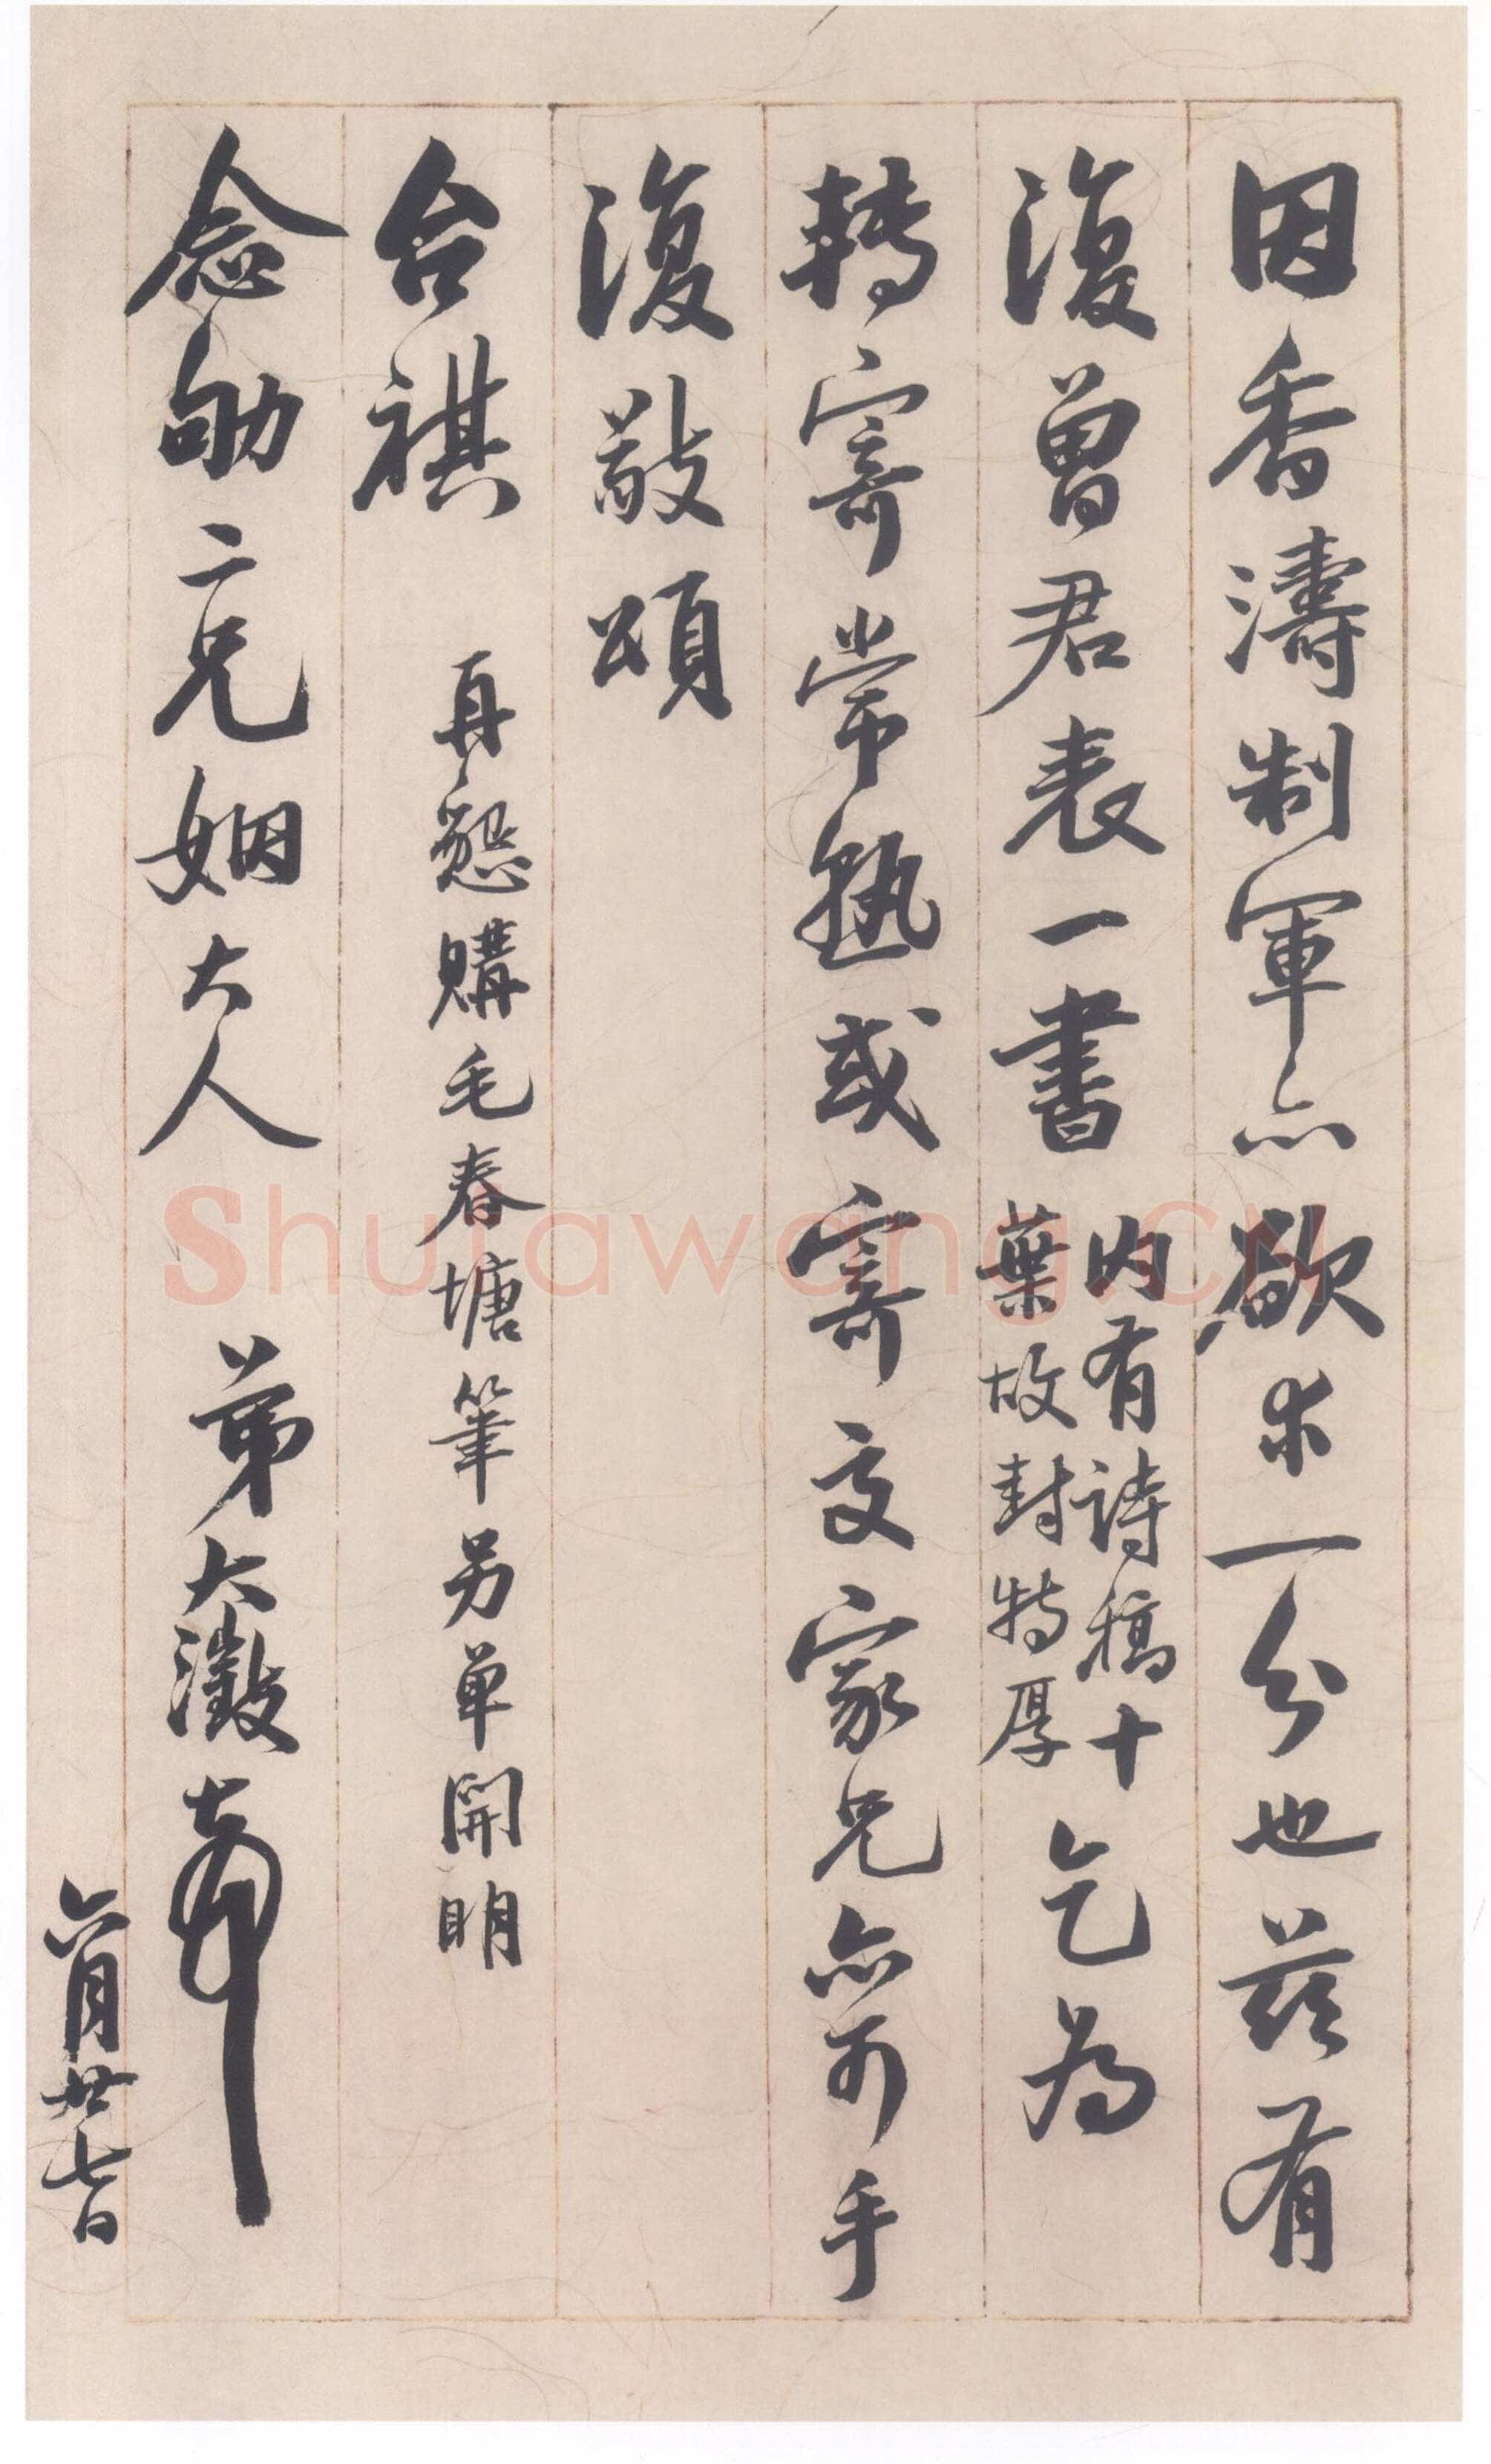 因香濤制軍亦欲求一分也茲有
復曾君表一書
內有詩稿十
葉故封特厚
乞為
轉寄常熟或寄交家兄亦可手
復敬頌
台祺
再懇購毛春塘筆另單開明
念劬二兄姻大人 弟大澂
六月廿七日
Shufawang.cn